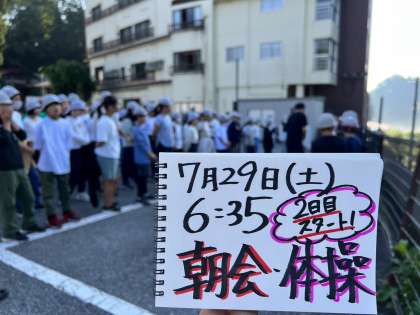 7月29日(土)
6:35
2日目
スタート!
朝会・体操